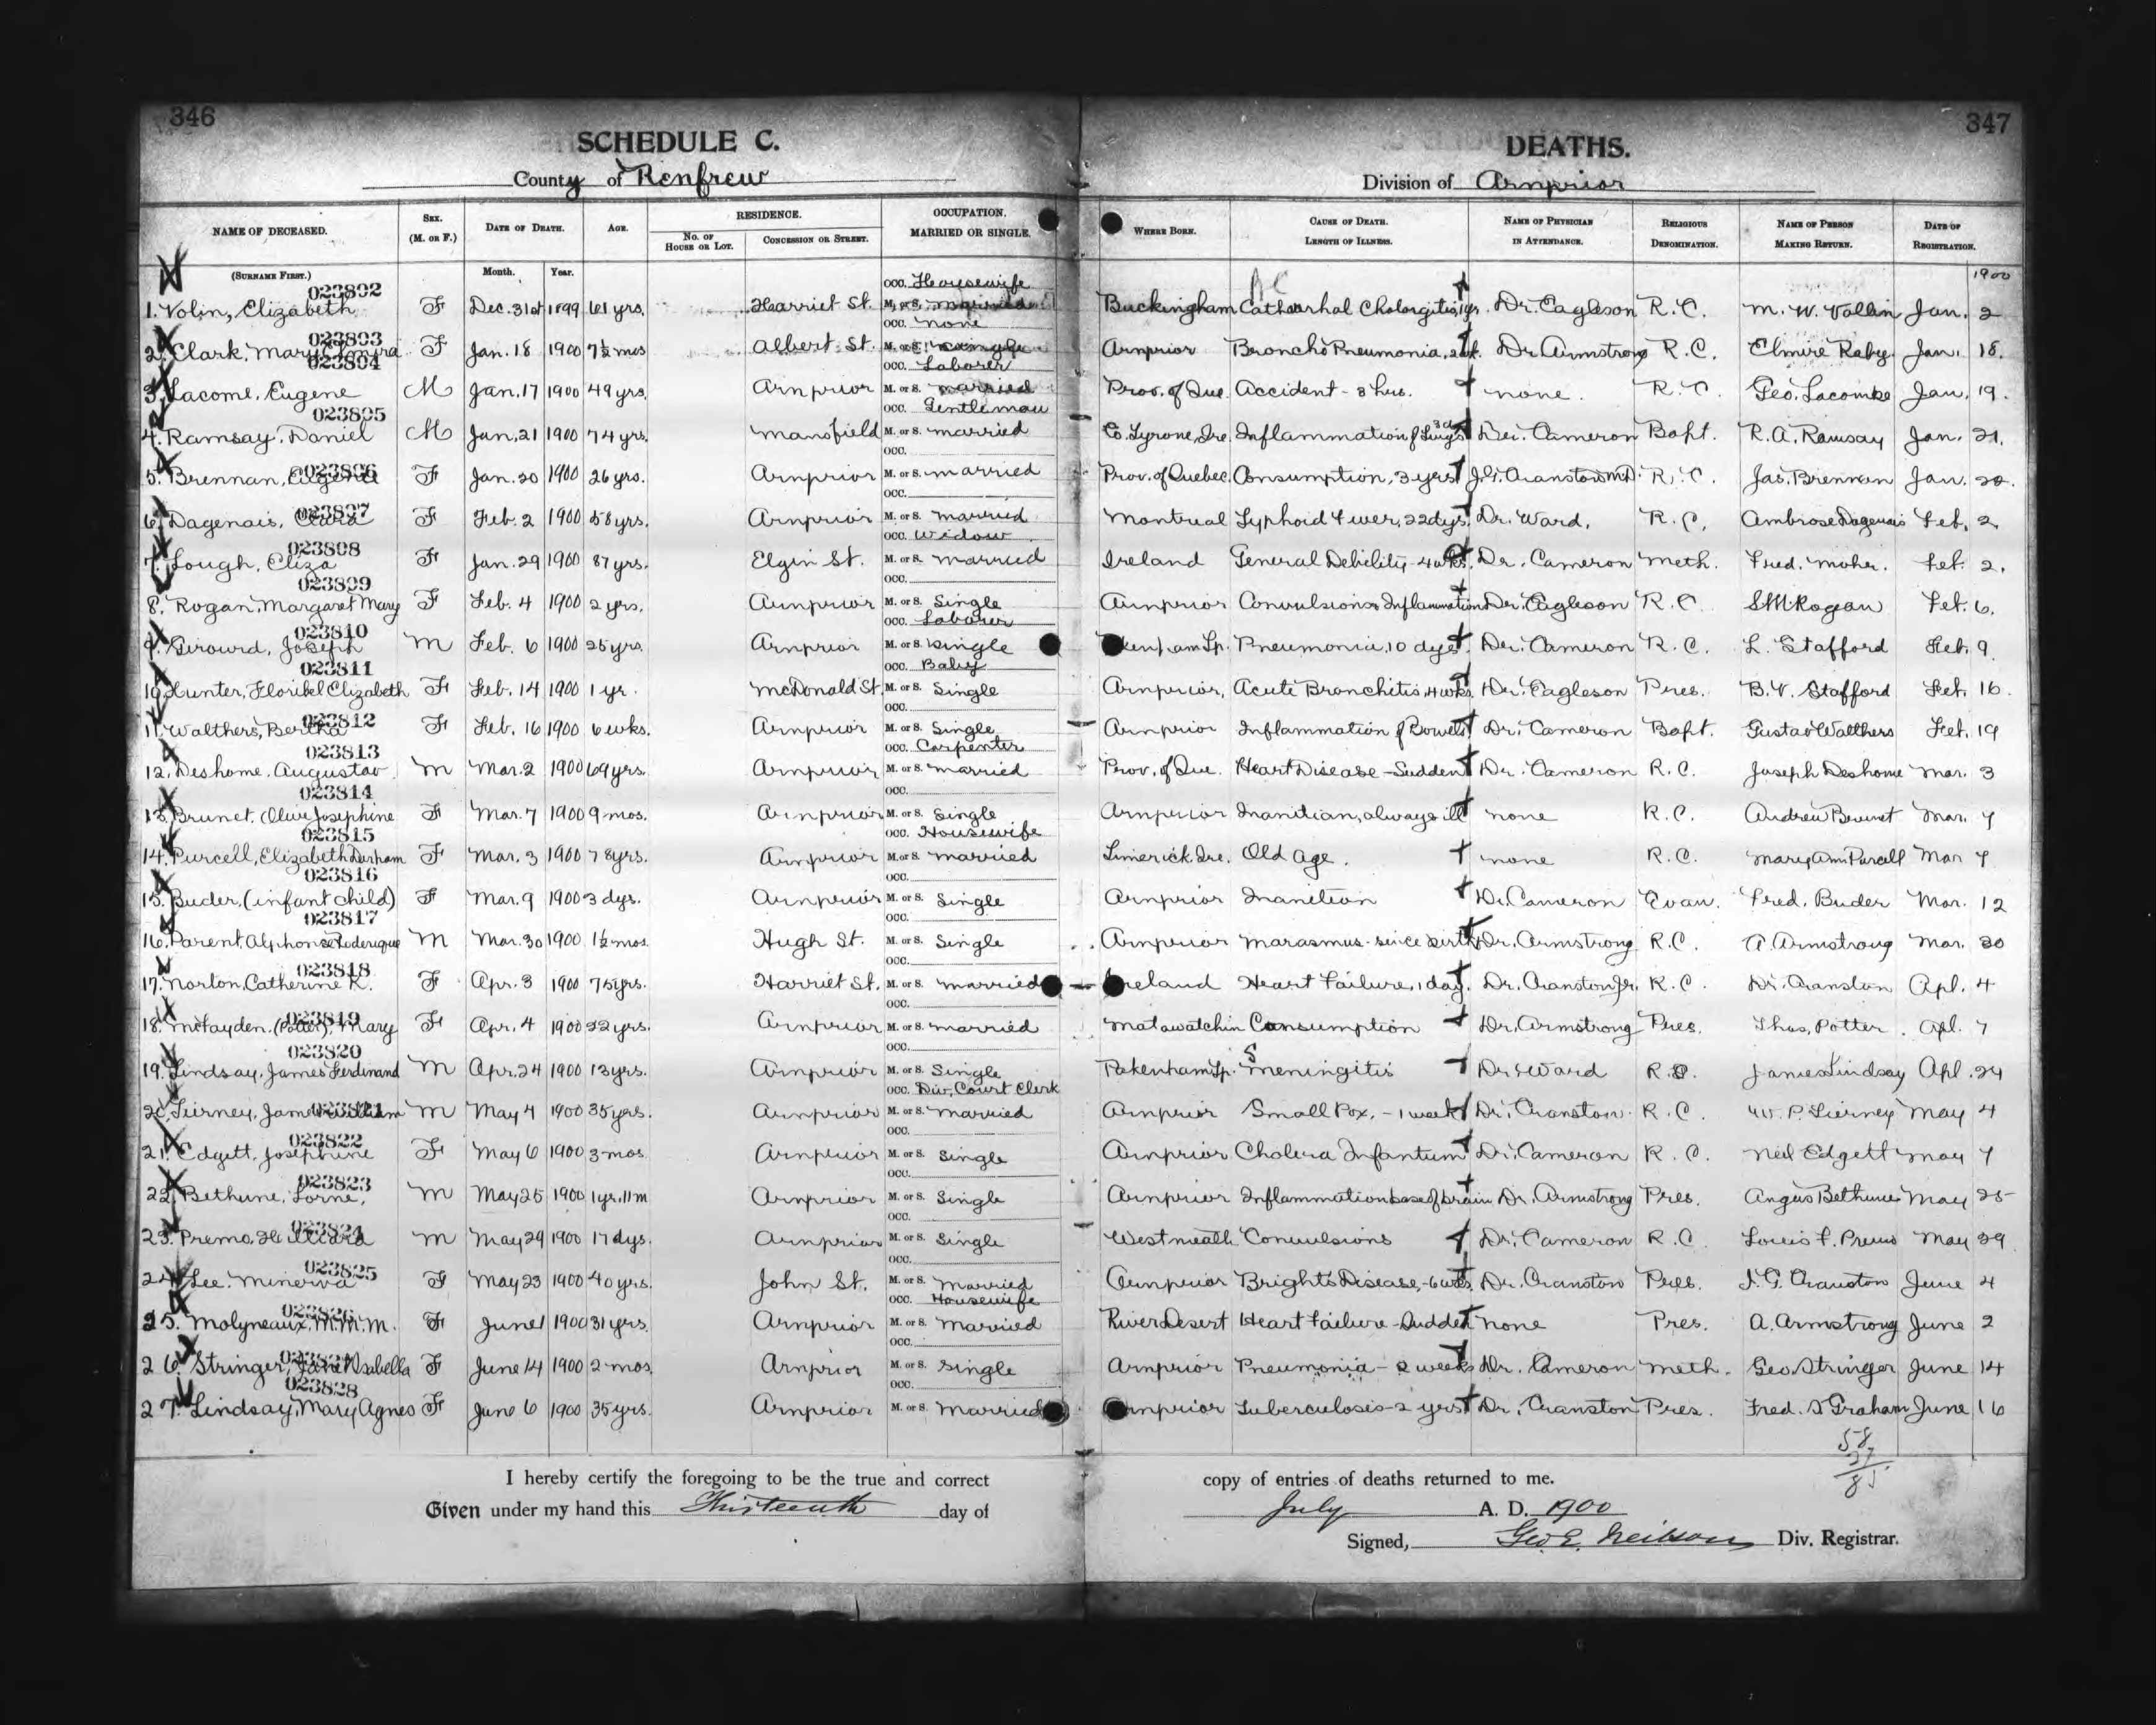 346
347
SCHEDULE C.
DEATHS.
County of Renfrew
Division of Arnprior
NAME OF DECEASED. SEX. (M. OR F.) DATE OF DEATH. AGE. RESIDENCE. No. OF HOUSE OR LOT. CONCESSION OR STREET. OCCUPATION. MARRIED OR SINGLE. WHERE BORN. CAUSE OF DEATH. LENGTH OF ILLNESS. NAME OF PHYSICIAN IN ATTENDANCE. RELIGIOUS DENOMINATION. NAME OF PERSON MAKING RETURN. DATE OF REGISTRATION.
(SURNAME FIRST.) Month. Year. 1900
023802 OCC. Housewife
1. Volin, Elizabeth F Dec. 31st 1899 61 yrs. Harriet St. M. or S. married Buckingham Catharrhal 1 yr. Dr. Eagleson R.C. M. W. Vallin Jan. 2
023803 OCC. none
2. Clark, Mary F Jan. 18 1900 7½ mos Albert St. M. or S. Single Arnprior Broncho Pneumonia, Dr Armstrong R.C. Elmire Raby Jan. 18.
023804 OCC. Laborer
3. Lacome, Eugene M Jan. 17 1900 49 yrs. Arnprior M. or S. married Prov. of Que. Accident - 3 hrs. none. R.C. Geo. Lacombe Jan. 19.
023805 OCC. Gentleman
4. Ramsay, Daniel M Jan. 21 1900 74 yrs. Mansfield M. or S. married Co. Tyrone, Ire. Inflammation of Lungs 3d Dr. Cameron Bapt. R. A. Ramsay Jan. 21.
023806 OCC.
5. Brennan, F Jan. 20 1900 26 yrs. Arnprior M. or S. married Prov. of Quebec. Consumption, 3 yrs J. G. Cranston M.D. R.C. Jas. Brennan Jan. 20.
023807 OCC.
6. Dagenais, Clara F Feb. 2 1900 58 yrs. Arnprior M. or S. married Montreal Typhoid Fever, 22 dys. Dr. Ward. R.C. Ambrose Dagenais Feb. 2.
023808 OCC. Widow
7. Lough, Eliza F Jan. 29 1900 87 yrs. Elgin St. M. or S. married Ireland General Debility - 4 wks. Dr. Cameron Meth. Fred. Moher. Feb. 2.
023809 OCC.
8. Rogan, Margaret Mary F Feb. 4 1900 2 yrs. Arnprior M. or S. Single Arnprior Convulsions Inflammation Dr. Eagleson R.C. S M Rogan Feb. 6.
023810 OCC. Laborer
9. Girourd, Joseph M Feb. 6 1900 25 yrs. Arnprior M. or S. Single Tp. Pneumonia, 10 dys. Dr. Cameron R.C. L. Stafford Feb. 9
023811 OCC. Baby
10. Hunter, Floribel Elizabeth F Feb. 14 1900 1 yr. McDonald St. M. or S. Single Arnprior, Acute Bronchitis, 4 wks. Dr. Eagleson Pres. B. V. Stafford Feb. 16.
023812 OCC.
11. Walthers, Bertha F Feb. 16 1900 6 wks. Arnprior M. or S. Single Arnprior Inflammation of Bowels Dr. Cameron Bapt. Gustav Walthers Feb. 19
023813 OCC. Carpenter
12. Deshome, Augustav M Mar. 2 1900 69 yrs. Arnprior M. or S. married Prov. of Que. Heart Disease - Sudden Dr. Cameron R.C. Joseph Deshome Mar. 3
023814 OCC.
13. Brunet, Olive Josephine F Mar. 7 1900 9 mos. Arnprior M. or S. Single Arnprior Inanitian, always ill none R.C. Andrew Brunet Mar. 7
023815 OCC. Housewife
14. Purcell, Elizabeth Durham F Mar. 3 1900 78 yrs. Arnprior M. or S. married Limerick, Ire. Old Age. none R.C. Mary Ann Purcell Mar 7
023816 OCC.
15. Buder, (infant child) F Mar. 9 1900 3 dys. Arnprior M. or S. Single Arnprior Inanition Dr. Cameron Evan. Fred. Buder Mar. 12
023817 OCC.
16. Parent, Alphonse M Mar. 30 1900 1½ mos. Hugh St. M. or S. Single Arnprior Marasmus - since birth Dr. Armstrong R.C. A. Armstrong Mar. 30
023818 OCC.
17. Norton, Catherine K. F Apr. 3 1900 75 yrs. Harriet St. M. or S. married Ireland Heart Failure, 1 day. Dr. Cranston Jr. R.C. Dr. Cranston Apl. 4
023819 OCC.
18. McFayden, (Potter), Mary F Apr. 4 1900 22 yrs. Arnprior M. or S. married Matawatchin Consumption Dr. Armstrong Pres. Thos. Potter. Apl. 7
023820 OCC.
19. Lindsay, James Ferdinand M Apr. 24 1900 13 yrs. Arnprior M. or S. Single Pakenham Tp. Meningitis Dr. Ward R.C. James Lindsay Apl. 24
023821 OCC. Div. Court Clerk
20. Tierney, James William M May 4 1900 35 yrs. Arnprior M. or S. married Arnprior Small Pox, - 1 week Dr. Cranston R.C. W. P. Tierney May 4
023822 OCC.
21. Edgett, Josephine F May 6 1900 3 mos Arnprior M. or S. Single Arnprior Cholera Infantum Dr. Cameron R.C. Neil Edgett May 7
023823 OCC.
22. Bethune, Lorne, M May 25 1900 1 yr. 11 m Arnprior M. or S. Single Arnprior Inflammation base of brain Dr. Armstrong Pres. Angus Bethune May 25
023824 OCC.
23. Premo, Hilliard M May 29 1900 17 dys. Arnprior M. or S. Single Westmeath Convulsions Dr. Cameron R.C. Louis F. Premo May 29
023825 OCC.
24. Lee, Minerva F May 23 1900 40 yrs. John St. M. or S. Married Arnprior Brights Disease, - 6 wks. Dr. Cranston Pres. J. G. Cranston June 4
023826 OCC. Housewife
25. Molyneaux, M. M. M. F June 1 1900 31 yrs. Arnprior M. or S. Married River Desert Heart Failure - Sudden none Pres. A. Armstrong June 2
023827 OCC.
26. Stringer, Jane Isabella F June 14 1900 2 mos. Arnprior M. or S. Single Arnprior Pneumonia - 2 weeks Dr. Cameron Meth. Geo. Stringer June 14
023828 OCC.
27. Lindsay, Mary Agnes F June 6 1900 35 yrs. Arnprior M. or S. Married Arnprior Tuberculosis - 2 yrs Dr. Cranston Pres. Fred. S Graham June 16
58
27
85
I hereby certify the foregoing to be the true and correct copy of entries of deaths returned to me.
Given under my hand this Thirteenth day of July A. D. 1900
Signed, Geo. E. Neilson Div. Registrar.